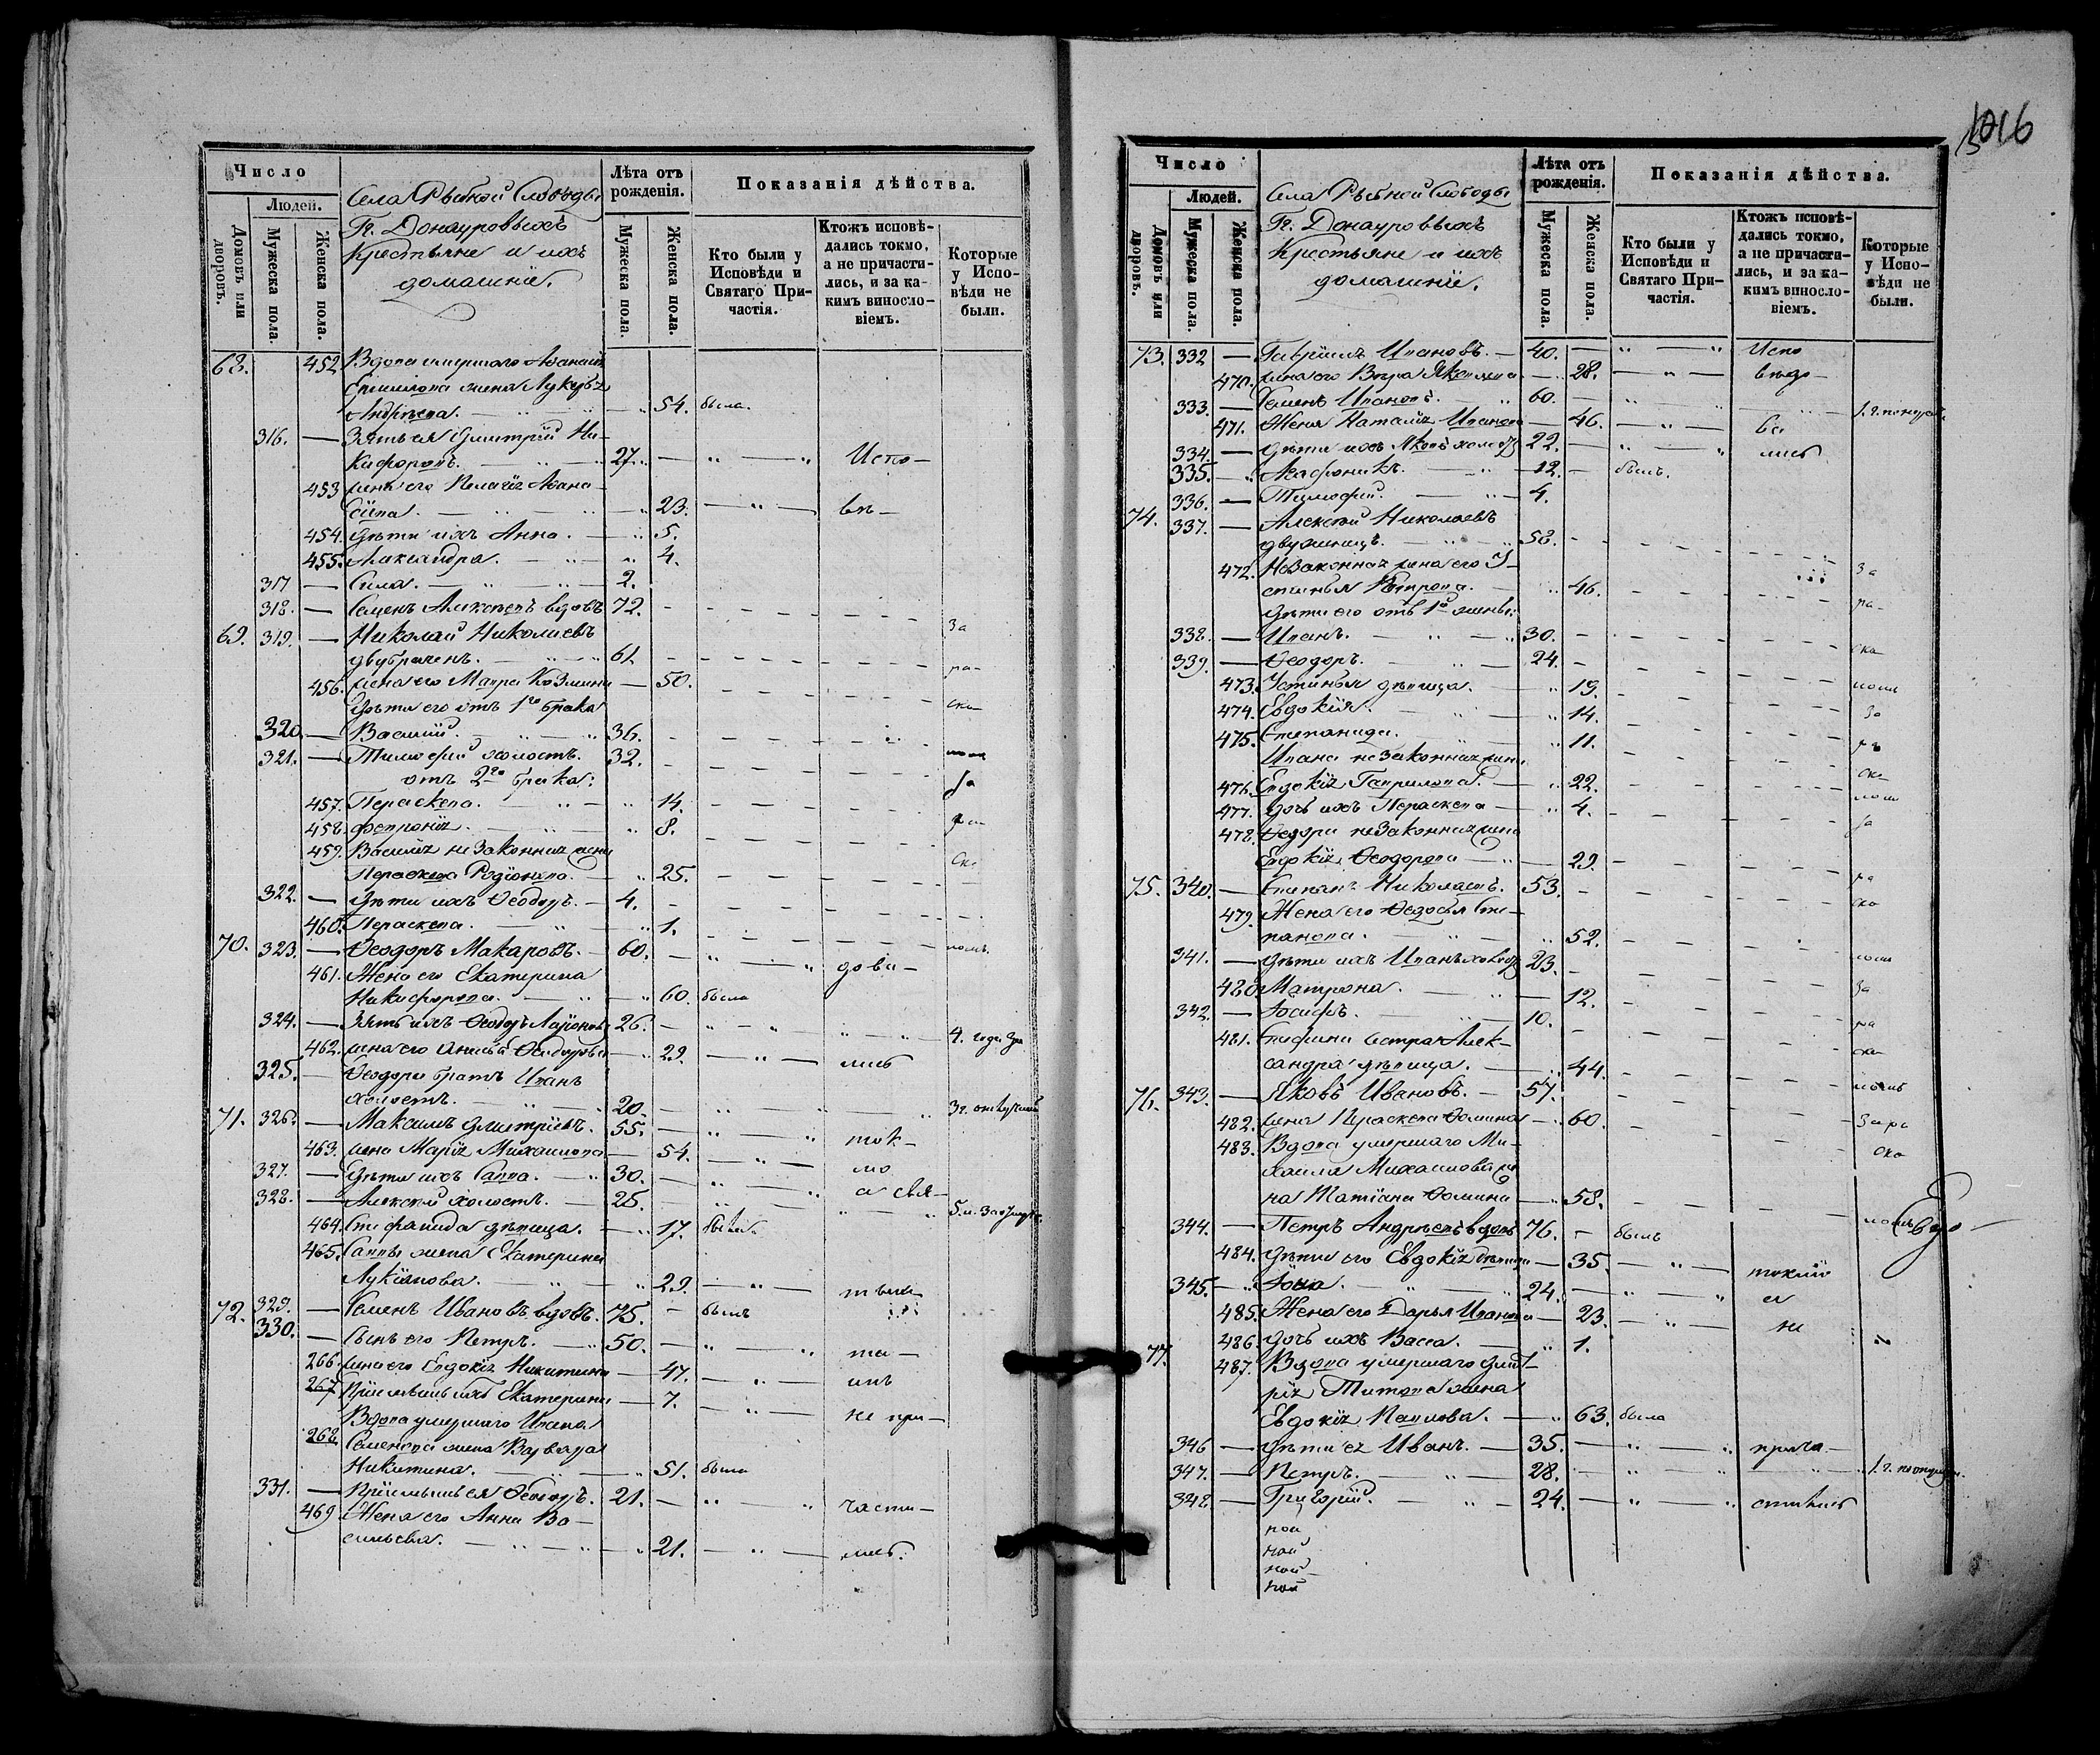 Число
Людей.
Домовъ или дворовъ.
Мужеска пола.
Женска пола.
Села Рыбной Слободы
Гг. Донауровыхъ
Крестьяне и ихъ
домашніе.
Лѣта отъ рожденія.
Мужеска пола.
Женска пола.
Показанія дѣйства.
Кто были у Исповѣди и Святаго Причастія.
Ктожъ исповѣдались токмо, а не причастились, и за какимъ винословіемъ.
Которые у Исповѣди не были.
68. 452 Вдова умершаго
жена
Андреева. 54. была.
316. Зять ея Дмитрій Ни-
кифоровъ. 27. Испо-
453 жена его Пелагія Аѳана-
сіева. 23. вѣ-
454. Дѣти ихъ Анна. 5.
455. Александра. 4.
317 Сила. 2.
318. Семенъ Алексѣевъ вдовъ 72.
69. 319. Николай Николаевъ За
двубраченъ. 61. ра-
456. жена его Мавра Козмина 50.
Дѣти его отъ 1го брака ско-
320. Василій. 36.
321. Тимофей холостъ. 32.
отъ 2го брака: За
457. Параскева. 14.
458. Февронія. 8. ра-
459. Василія незаконная жена
Параскева Родіонова. 25. ско
322. Дѣти ихъ Ѳеодоръ. 4.
460. Параскева. 1.
70. 323. Ѳеодоръ Макаровъ. 60. дова-
461. Жена его Екатерина
Никифорова. 60. была
324. Зять ихъ Ѳеодоръ Ларіоновъ 26. 4. года
462. жена его Анисья Ѳеодорова 29. лись
325. Ѳеодора братъ Иванъ
холостъ. 20. 3 г.
71. 326. Максимъ Дмитріевъ. 55. ток-
463. жена Марія Михаилова 54. мо
327. Дѣти ихъ Савва. 30. а свя-
328. Алексѣй холостъ. 25.
464. Стефанида дѣвица. 17. была
465. Саввы жена Екатерина
Лукіанова. 29.
72. 329. Семенъ Ивановъ вдовъ. 75. былъ
330. Сынъ его Петръ. 50. та-
266 жена его Евдокія Никитина 47. инъ
267 Пріемышъ ихъ Екатерина 7. не при-
Вдова умершаго Ивана
268 Семенова жена Варвара
Никитина. 51. была
331. Пріемышъ ея Ѳеодоръ. 21. части-
469 Жена его Анна Ва-
сильева. 21. лись.
1016
Число
Людей.
Домовъ или дворовъ.
Мужеска пола.
Женска пола.
Села Рыбной Слободы
Гг. Донауровыхъ
Крестьяне и ихъ
домашніе.
Лѣта отъ рожденія.
Мужеска пола.
Женска пола.
Показанія дѣйства.
Кто были у Исповѣди и Святаго Причастія.
Ктожъ исповѣдались токмо, а не причастились, и за какимъ винословіемъ.
Которые у Исповѣди не были.
73. 332 Гавріилъ Ивановъ. 40. Испо
470. жена его Вѣра Яковлева 28. вѣдо-
333. Семенъ Ивановъ. 60.
471. Жена Наталія Иванова 46. ва
334. Дѣти ихъ Яковъ холостъ 22. лись
335. Агафоникъ. 12. былъ.
336. Тимофей. 4.
74. 337. Алексѣй Николаевъ
двуженецъ. 58.
472. Незаконная жена его У- За
стинья Петрова. 46. ра-
Дѣти его отъ 1й жены:
338. Иванъ. 30.
339. Ѳеодоръ. 24. ско-
473. Устинья дѣвица. 19.
474. Евдокія. 14. За
475. Степанида. 11. ра
Ивана незаконная жена
476. Евдокія Гаврилова. 22. ско-
477. Дочь ихъ Параскева 4.
478. Ѳеодора незаконная жена За
Евдокія Ѳеодорова 29.
75. 340. Степанъ Николаевъ. 53. ра
479. Жена его Ѳедосья Сте- ско
панова. 52.
341. Дѣти ихъ Иванъ холостъ 23.
480. Матрона. 12. За
342. Іосифъ. 10. ра
481. Стефана сестра Алек- ско-
сандра дѣвица. 44.
76. 343. Яковъ Ивановъ. 57.
482. жена Параскева Ѳомина 60. Зара
483. Вдова умершаго Ми-
хаила Михаилова же- ско
на Татіана Ѳомина 58.
344. Петръ Андреевъ вдовъ 76. былъ
484. Дѣти его Евдокія дѣвица 35. токмо
345. Іона. 24.
485. Жена его Дарья Иванова 23. не
486. Дочь ихъ Васса. 1.
77. 487. Вдова умершаго Дмит-
рія Титова жена
Евдокія Павлова. 63. была
346 Дѣти ея Иванъ. 35. прича-
347. Петръ. 28.
348 Григорій. 24. стились